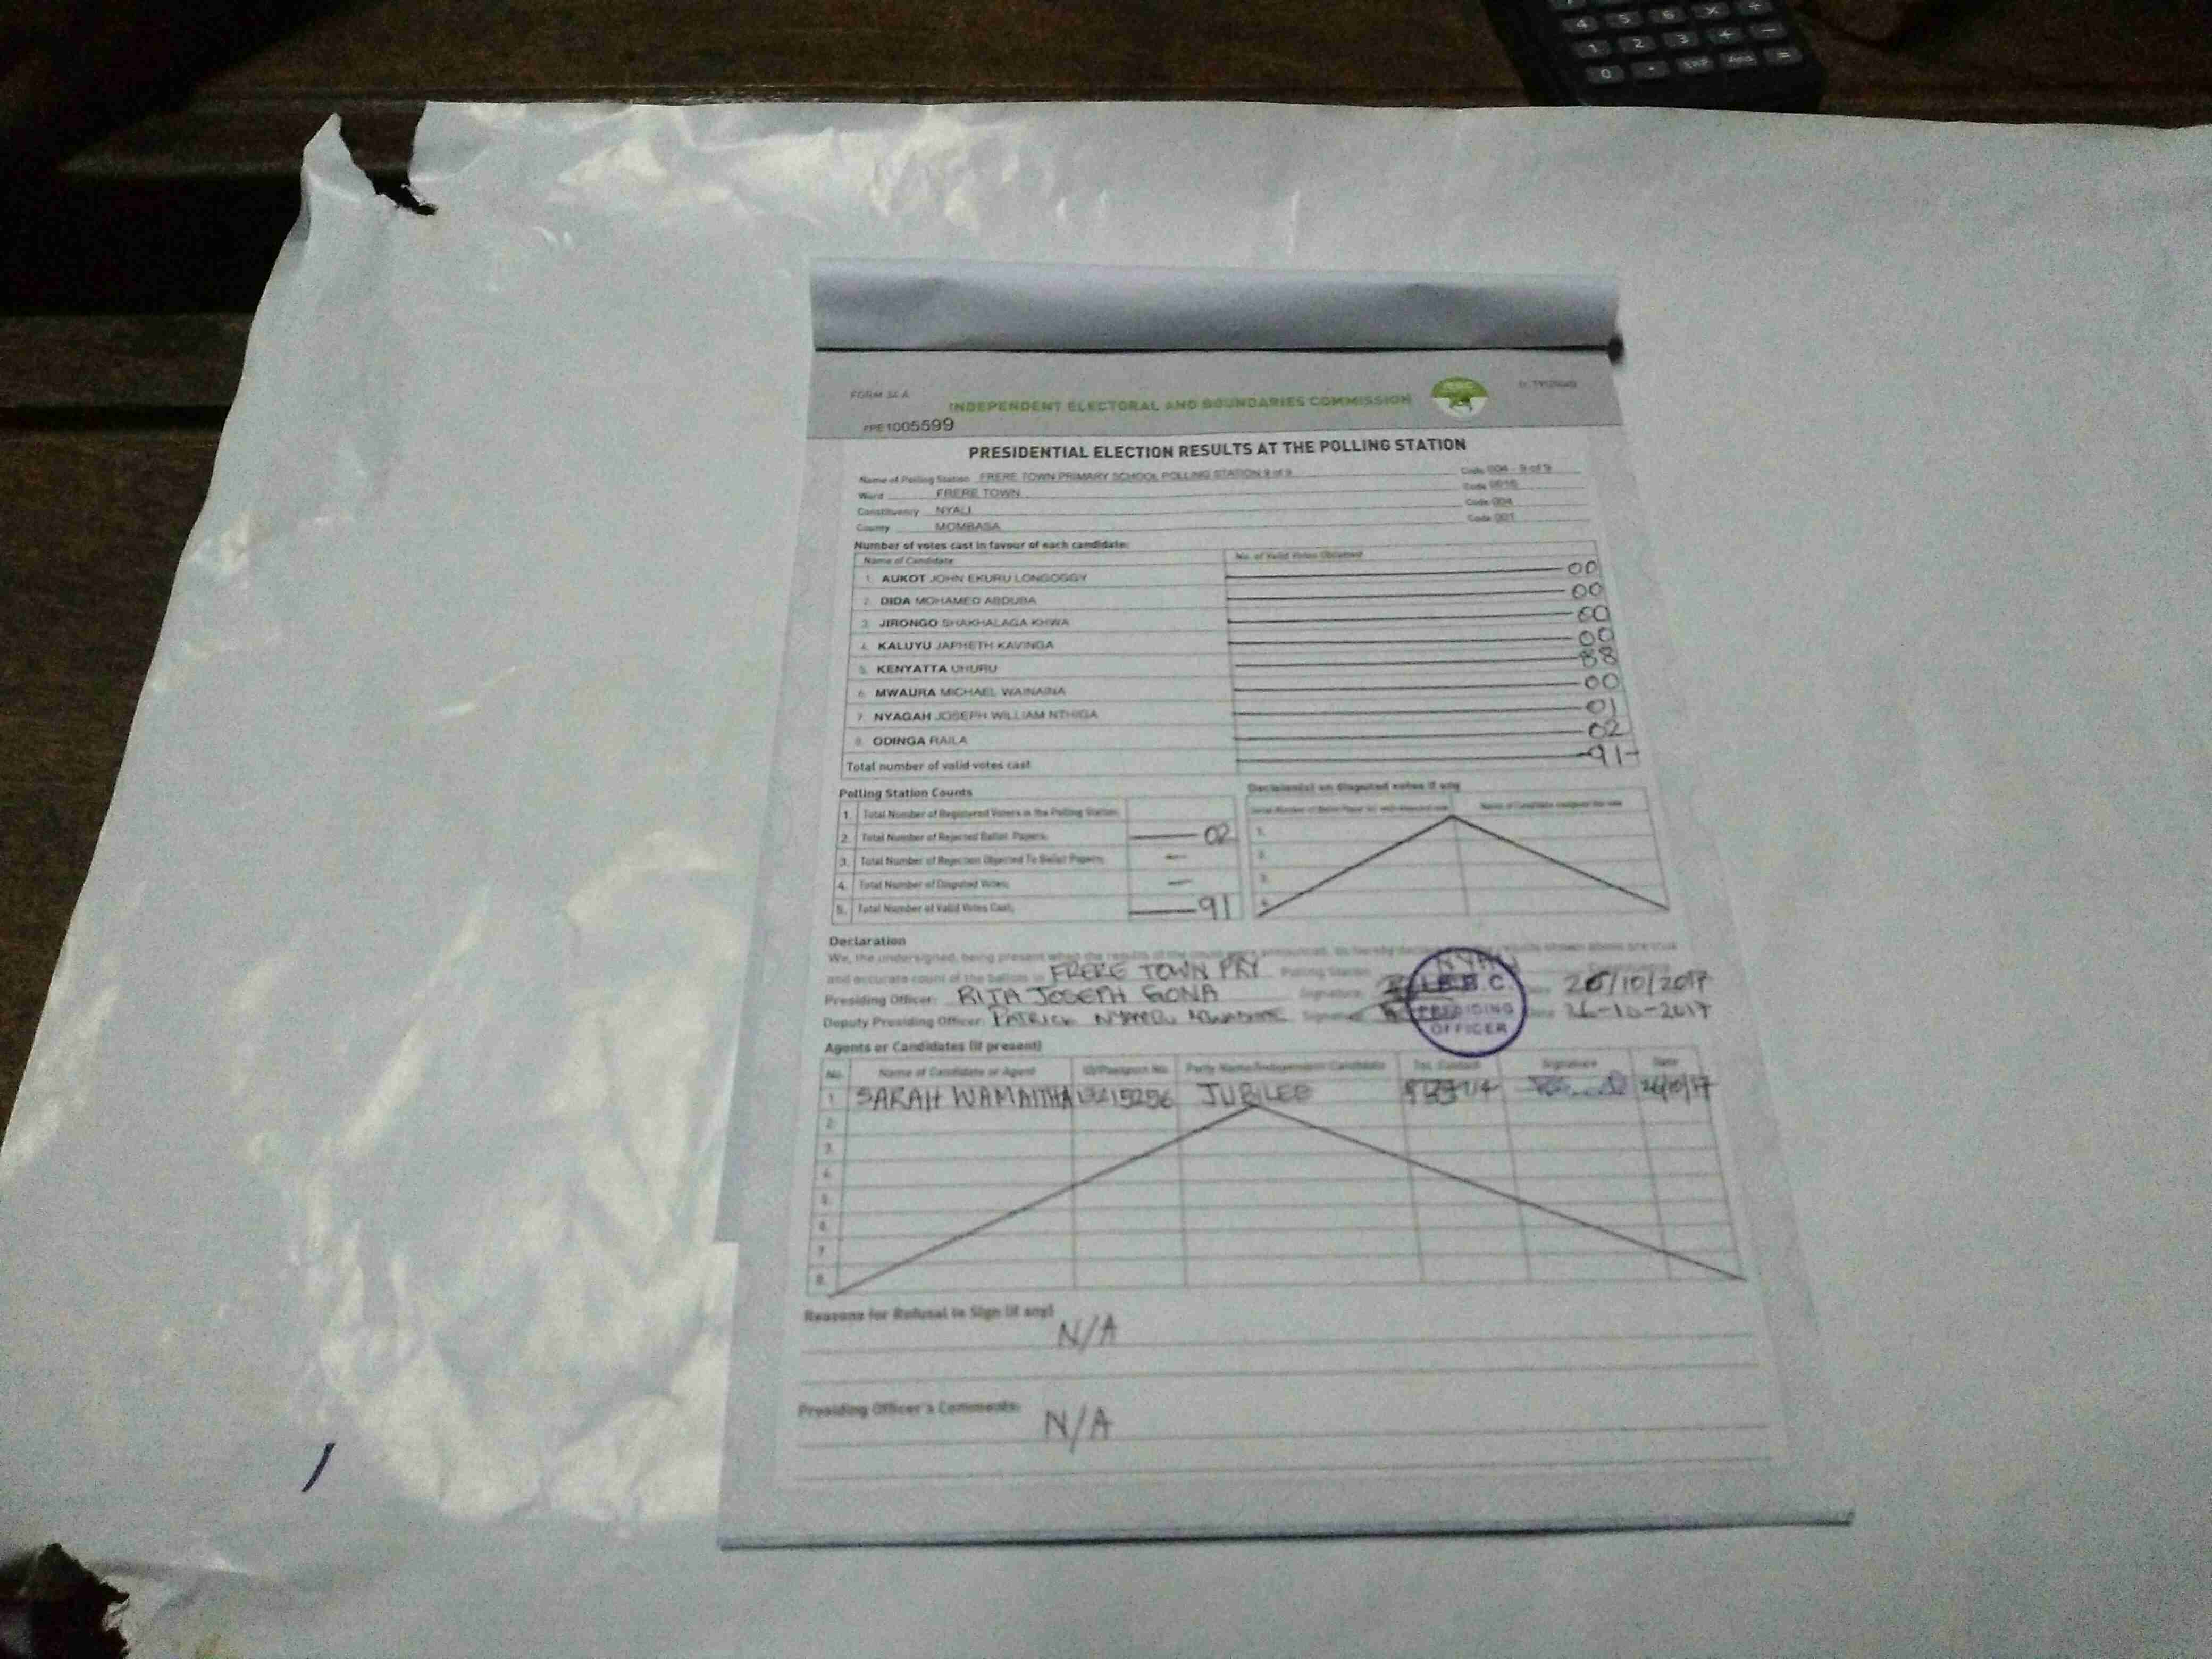 4 5 6 × ÷
1 2 3 + −
0 . EXP Ans =
FORM 34 A
INDEPENDENT ELECTORAL AND BOUNDARIES COMMISSION
PPE 1005599
PRESIDENTIAL ELECTION RESULTS AT THE POLLING STATION
Name of Polling Station FRERE TOWN PRIMARY SCHOOL POLLING STATION 9 of 9 Code 004 - 9 of 9
Ward FRERE TOWN Code 0016
Constituency NYALI Code 004
County MOMBASA Code 001
Number of votes cast in favour of each candidate:
Name of Candidate No. of Valid Votes Obtained
1. AUKOT JOHN EKURU LONGOGGY 00
2. DIDA MOHAMED ABDUBA 00
3. JIRONGO SHAKHALAGA KHWA 00
4. KALUYU JAPHETH KAVINGA 00
5. KENYATTA UHURU 88
6. MWAURA MICHAEL WAINAINA 00
7. NYAGAH JOSEPH WILLIAM NTHIGA 01
8. ODINGA RAILA 02
Total number of valid votes cast 91
Polling Station Counts Decision(s) on disputed votes if any
1. Total Number of Registered Voters in the Polling Station
2. Total Number of Rejected Ballot Papers 02
3. Total Number of Rejection Objected To Ballot Papers -
4. Total Number of Disputed Votes -
5. Total Number of Valid Votes Cast 91
1.
2.
3.
4.
Declaration
We, the undersigned, being present when the results of the count were announced, do hereby declare
and accurate count of the ballots in FRERE TOWN PRY Polling Station NYALI
Presiding Officer: RITA JOSEPH GONA Signature: Date 26/10/2017
Deputy Presiding Officer: PATRICK Signature Date 26-10-2017
I.E.B.C.
PRESIDING
OFFICER
Agents or Candidates (if present)
No. Name of Candidate or Agent ID/Passport No. Party Name/Independent Candidate Tel. Contact Signature Date
1 SARAH WAMAITHA JUBILEE 26/10/17
2.
3.
4.
5.
6.
7
8.
Reasons for Refusal to Sign (if any)
N/A
Presiding Officer's Comments:
N/A